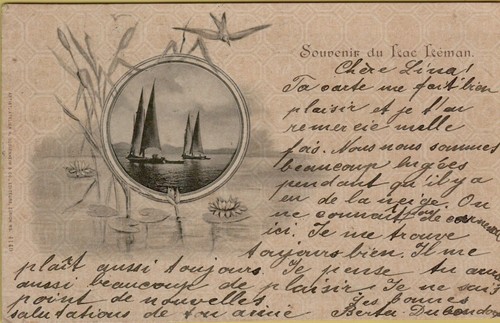 Souvenir du Lac Léman.
Chère Lina!
Ta carte me fait bien
plaisir et je t'en
remercie mille
fois. Nous nous sommes
beaucoup lugées
pendant qu'il y a
eu de la neige. On
ne connait pas de
ici. Je me trouve
toujours bien. Il me
plaît aussi toujours. Je pense tu auras
aussi beaucoup de plaisir. Je ne sais
point de nouvelles. Les bonnes
salutations de ton amie Berta